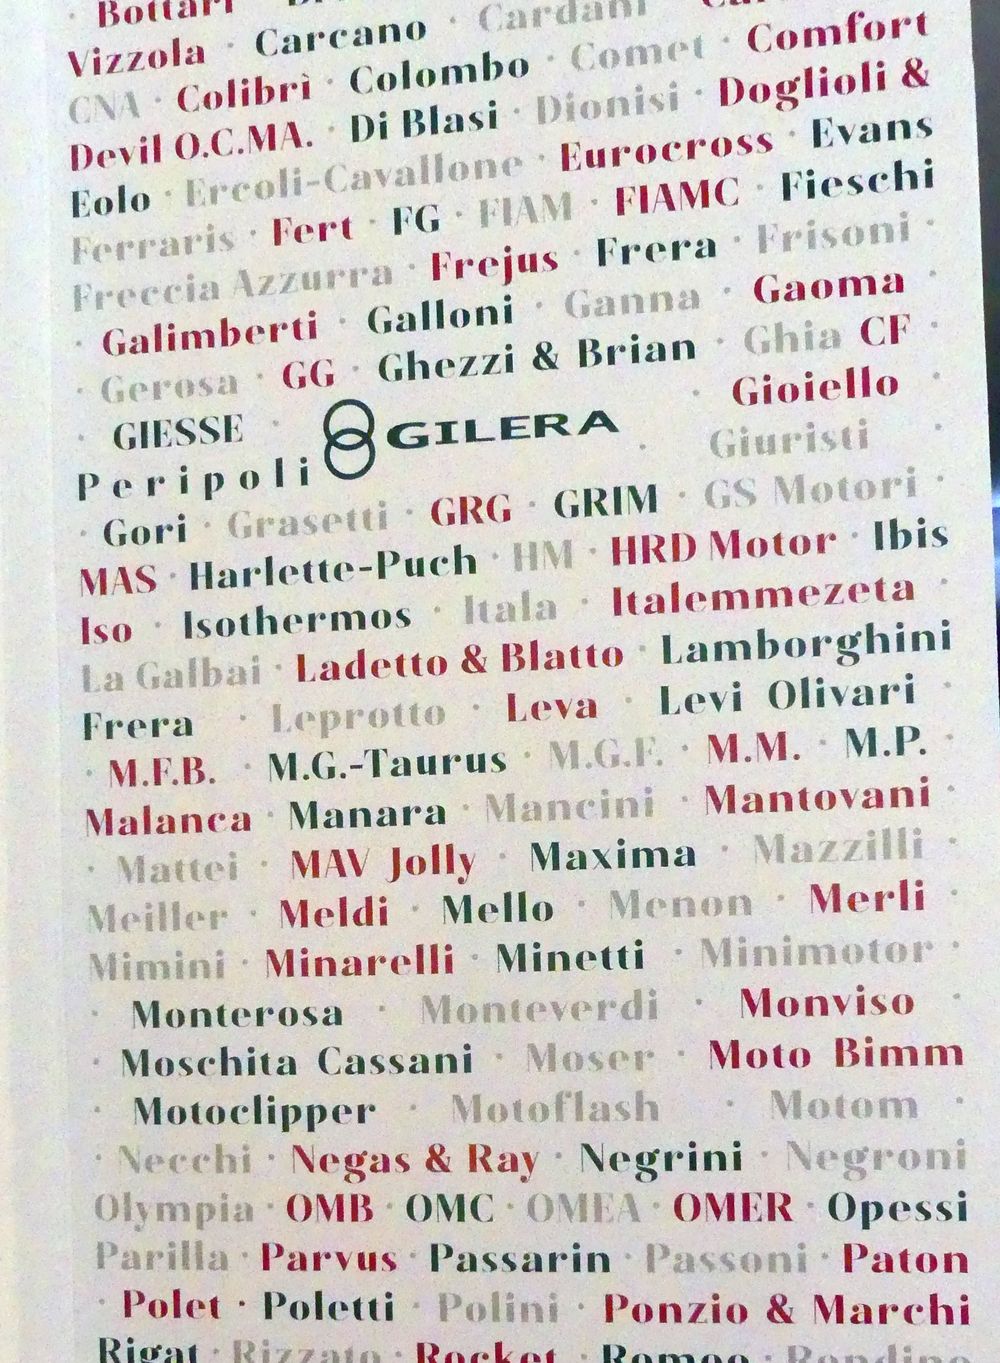 · Bottari ·
Vizzola · Carcano · Cardani ·
CNA · Colibrì · Colombo · Comet · Comfort
Devil O.C.MA. · Di Blasi · Dionisi · Doglioli &
Eolo · Ercoli-Cavallone · Eurocross · Evans
Ferraris · Fert · FG · FIAM · FIAMC · Fieschi
Freccia Azzurra · Frejus · Frera · Frisoni ·
· Galimberti · Galloni · Ganna · Gaoma ·
· Gerosa · GG · Ghezzi & Brian · Ghia CF ·
· GIESSE · GILERA · Gioiello ·
Peripoli · Giuristi ·
· Gori · Grasetti · GRG · GRIM · GS Motori ·
MAS · Harlette-Puch · HM · HRD Motor · Ibis
Iso · Isothermos · Itala · Italemmezeta ·
La Galbai · Ladetto & Blatto · Lamborghini
Frera · Leprotto · Leva · Levi Olivari ·
· M.F.B. · M.G.-Taurus · M.G.F. · M.M. · M.P.
Malanca · Manara · Mancini · Mantovani ·
· Mattei · MAV Jolly · Maxima · Mazzilli ·
Meiller · Meldi · Mello · Menon · Merli ·
Mimini · Minarelli · Minetti · Minimotor ·
· Monterosa · Monteverdi · Monviso ·
· Moschita Cassani · Moser · Moto Bimm
· Motoclipper · Motoflash · Motom ·
· Necchi · Negas & Ray · Negrini · Negroni
Olympia · OMB · OMC · OMEA · OMER · Opessi
Parilla · Parvus · Passarin · Passoni · Paton
· Polet · Poletti · Polini · Ponzio & Marchi
Rigat · Rizzato · Rocket · Romeo · Rondine